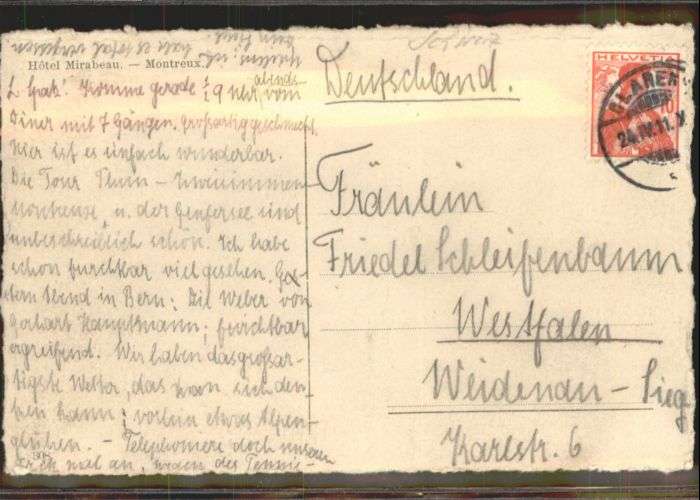 Hôtel Mirabeau. — Montreux.
L. Spatz! Komme gerade ½ 9 Uhr abends vom
Diner mit 7 Gängen. Großartig geschmeckt.
Hier ist es einfach wunderbar.
Die Tour Thun - Zweisimmen
Montreux, u. der Genfersee sind
unbeschreiblich schön. Ich habe
schon furchtbar viel gesehen. Ges-
tern Abend in Bern: Die Weber von
Gerhart Hauptmann; furchtbar
ergreifend. Wir haben das großar-
tigste Wetter, das man sich den-
ken kann; vorhin etwas Alpen-
glühen. - Telephoniere doch
mal an, wegen des Tennis-
hab es total vergessen
Schweiz
Deutschland.
Fräulein
Friedel Schleifenbaum
Westfalen
Weidenau - Sieg
Karlstr. 6
HELVETIA
10
CLARENS
24.IV.11.